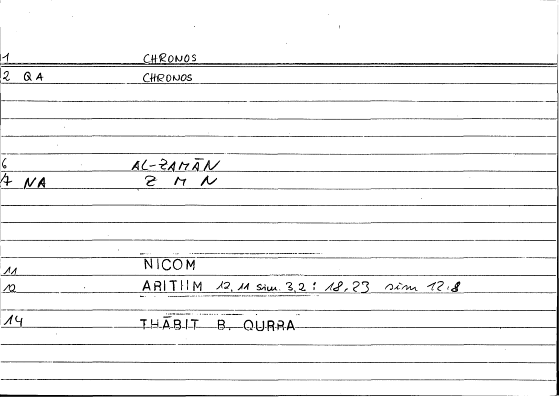 1 CHRONOS
2 QA CHRONOS
6 AL-ZAMĀN
7 NA Z M N
11 NICOM
12 ARITHM 12,11 sim. 3,2 : 18,23 sim 12,8
14 THĀBIT B. QURRA